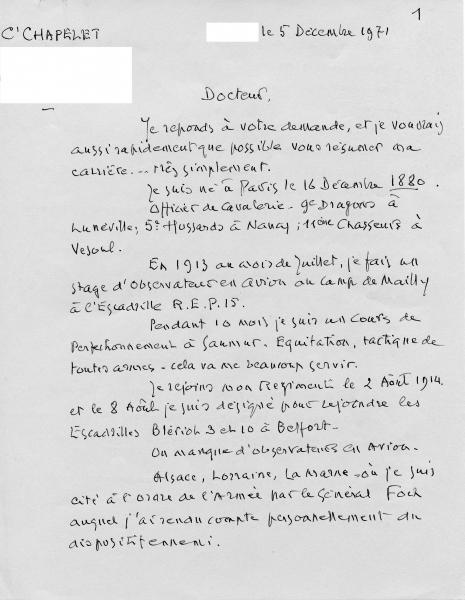 1
Ct CHAPELET
le 5 Décembre 1971
Docteur,
Je reponds à votre demande, et je voudrais
aussi rapidement que possible vous résumer ma
carrière... très simplement.
Je suis né à Paris le 16 Décembre 1880.
Officier de Cavalerie. 9e Dragons à
Luneville; 5e Hussards à Nancy; 11ème Chasseurs à
Vesoul.
En 1913 au mois de Juillet, je fais un
stage d'Observateur en avion au camp de Mailly
à l'Escadrille R.E.P. 15.
Pendant 10 mois je suis un Cours de
Perfectionnement à Saumur. Equitation, tactique de
toutes armes - cela va me beaucoup servir.
Je rejoins mon Regiment le 2 Août 1914
et le 8 Août je suis désigné pour rejoindre les
Escadrilles Blériot 3 et 10 à Belfort -
On manque d'observateurs en Avion.
Alsace, Lorraine, La Marne - où je suis
cité à l'ordre de l'Armée par le Général Foch
auquel j'ai rendu compte personnellement du
dispositif ennemi.